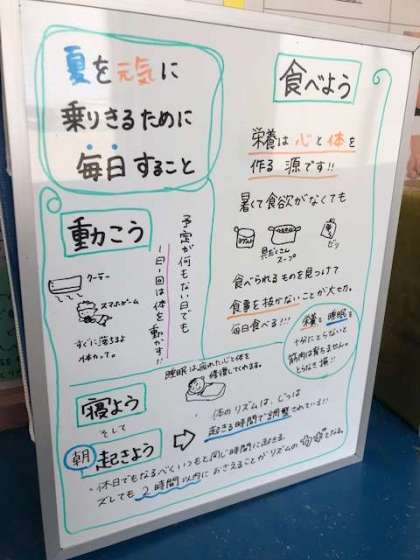 夏を元気に
乗りきるために
毎日すること
食べよう
栄養は心と体を
作る源です!!
暑くて食欲がなくても
具だくさん
スープ
ゼリー
食べられるものを見つけて
食事を抜かないことが大切。
毎日食べる!!!
栄養と睡眠を
十分にとらないと
筋肉は育ちません。
動こう
クーラー
スマホゲーム
すぐに落ちるよ
体力って。
予定が何もない日でも
1日1回は体を動かす!!
寝よう
睡眠は疲れた心と体を
修復してくれます。
そして
朝起きよう
体のリズムは、じつは
起きる時間で調整されている!!
・休日でもなるべくいつもと同じ時間に起きる。
ズレても2時間以内におさえることがリズムの